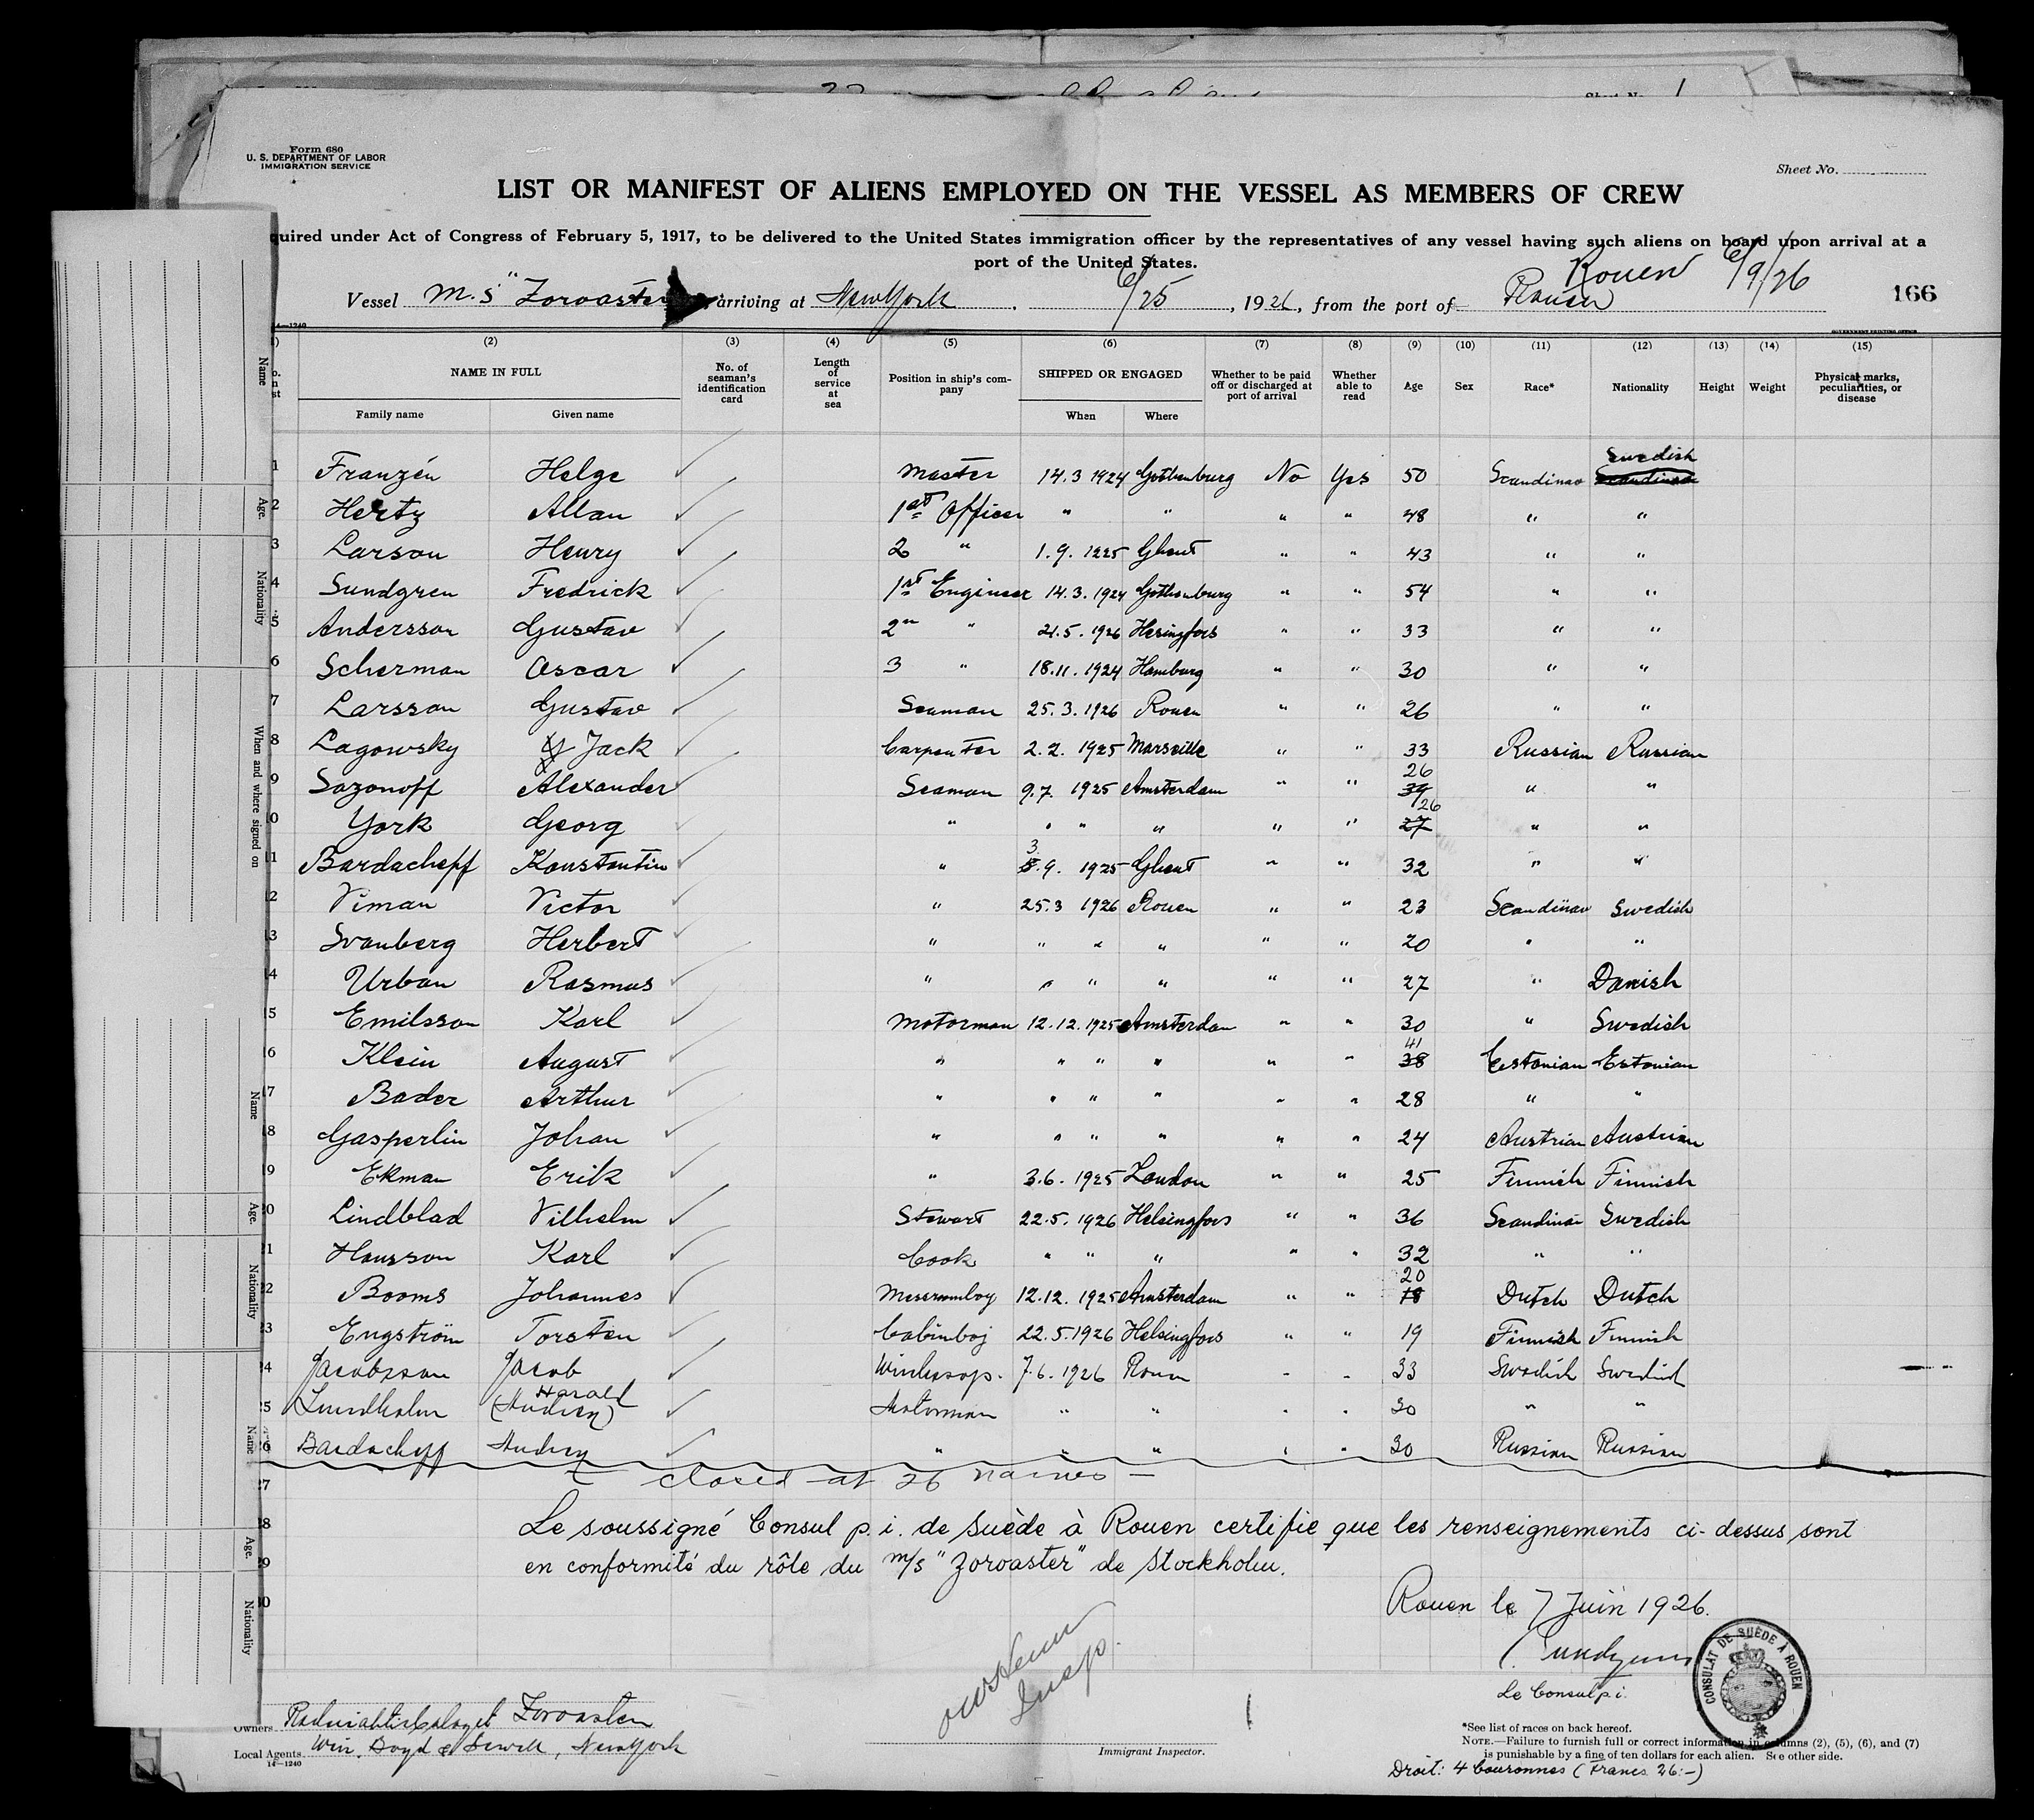 Sheet No. 1
Form 680
U. S. DEPARTMENT OF LABOR
IMMIGRATION SERVICE
Sheet No.
LIST OR MANIFEST OF ALIENS EMPLOYED ON THE VESSEL AS MEMBERS OF CREW
quired under Act of Congress of February 5, 1917, to be delivered to the United States immigration officer by the representatives of any vessel having such aliens on board upon arrival at a
port of the United States.
Rouen 6/9/26
Vessel M.S "Zoroaster arriving at New York, 6/25, 1926, from the port of Rouen
166
14—1240
GOVERNMENT PRINTING OFFICE
(2) (3) (4) (5) (6) (7) (8) (9) (10) (11) (12) (13) (14) (15)
NAME IN FULL Family name Given name
No. of seaman's identification card
Length of service at sea
Position in ship's company
SHIPPED OR ENGAGED When Where
Whether to be paid off or discharged at port of arrival
Whether able to read
Age
Sex
Race*
Nationality
Height
Weight
Physical marks, peculiarities, or disease
Swedish
1 Franzén Helge Master 14.3 1924 Gothenburg No Yes 50 Scandinav Scandinav
2 Hertz Allan 1st Officer " " " " 48 " "
3 Larson Henry 2 " 1.9. 1925 Ghent " " 43 " "
4 Sundgren Fredrick 1st Engineer 14.3. 1924 Gothenburg " " 54 " "
5 Andersson Gustav 2n " 21.5. 1926 Hesingfors " " 33 " "
6 Scherman Oscar 3 " 18.11. 1924 Hamburg " " 30 " "
7 Larsson Gustav Seaman 25.3. 1926 Rouen " " 26 " "
8 Lagowsky Jack Carpenter 2.2. 1925 Marseille " " 33 Russian Russian
26
9 Sazonoff Alexander Seaman 9.7. 1925 Amsterdam " " 34 " "
26
10 York Georg " " " " " " 27 " "
3
11 Bardacheff Konstantin " 8.9. 1925 Ghent " " 32 " "
12 Viman Victor " 25.3 1926 Rouen " " 23 Scandinav Swedish
13 Svanberg Herbert " " " " " " 20 " "
14 Urban Rasmus " " " " " " 27 " Danish
15 Emilsson Karl Motorman 12.12. 1925 Amsterdam " " 30 " Swedish
41
16 Klein August " " " " " " 38 Estonian Estonian
17 Bader Arthur " " " " " " 28 " "
18 Gasperlin Johan " " " " " " 24 Austrian Austrian
19 Ekman Erik " 3.6. 1925 London " " 25 Finnish Finnish
20 Lindblad Vilhelm Stewart 22.5. 1926 Helsingfors " " 36 Scandinav Swedish
21 Hansson Karl Cook " " " " " 32 " "
20
22 Booms Johannes Messroomboy 12.12. 1925 Amsterdam " " 18 Dutch Dutch
23 Engström Torsten Cabinboj 22.5. 1926 Helsingfors " " 19 Finnish Finnish
24 Jacobsson Jacob 7.6. 1926 Rouen " " 33 Swedish Swedish
Harald
25 Lundholm (Andrey) Motorman " " " " 30 " "
26 Bardacheff Andrey " " " " " 30 Russian Russian
27 — closed at 26 names —
28 Le soussigné Consul p.i. de Suède à Rouen certifie que les renseignements ci-dessus sont
29 en conformité du rôle du m/s "Zoroaster" de Stockholm.
30 Rouen le 7 Juin 1926.
Le Consul p.i.
CONSULAT DE SUÈDE À ROUEN
Insp.
Owners Rederiaktiebolaget Zoroaster
Local Agents Win. Boyd & Sewell, New York
14—1240
Immigrant Inspector.
*See list of races on back hereof.
NOTE.—Failure to furnish full or correct information in columns (2), (5), (6), and (7)
is punishable by a fine of ten dollars for each alien. See other side.
Droit: 4 Couronnes (Francs 26:-)
Name
Age.
Nationality
When and where signed on
Name
Age.
Nationality
Name
Age.
Nationality